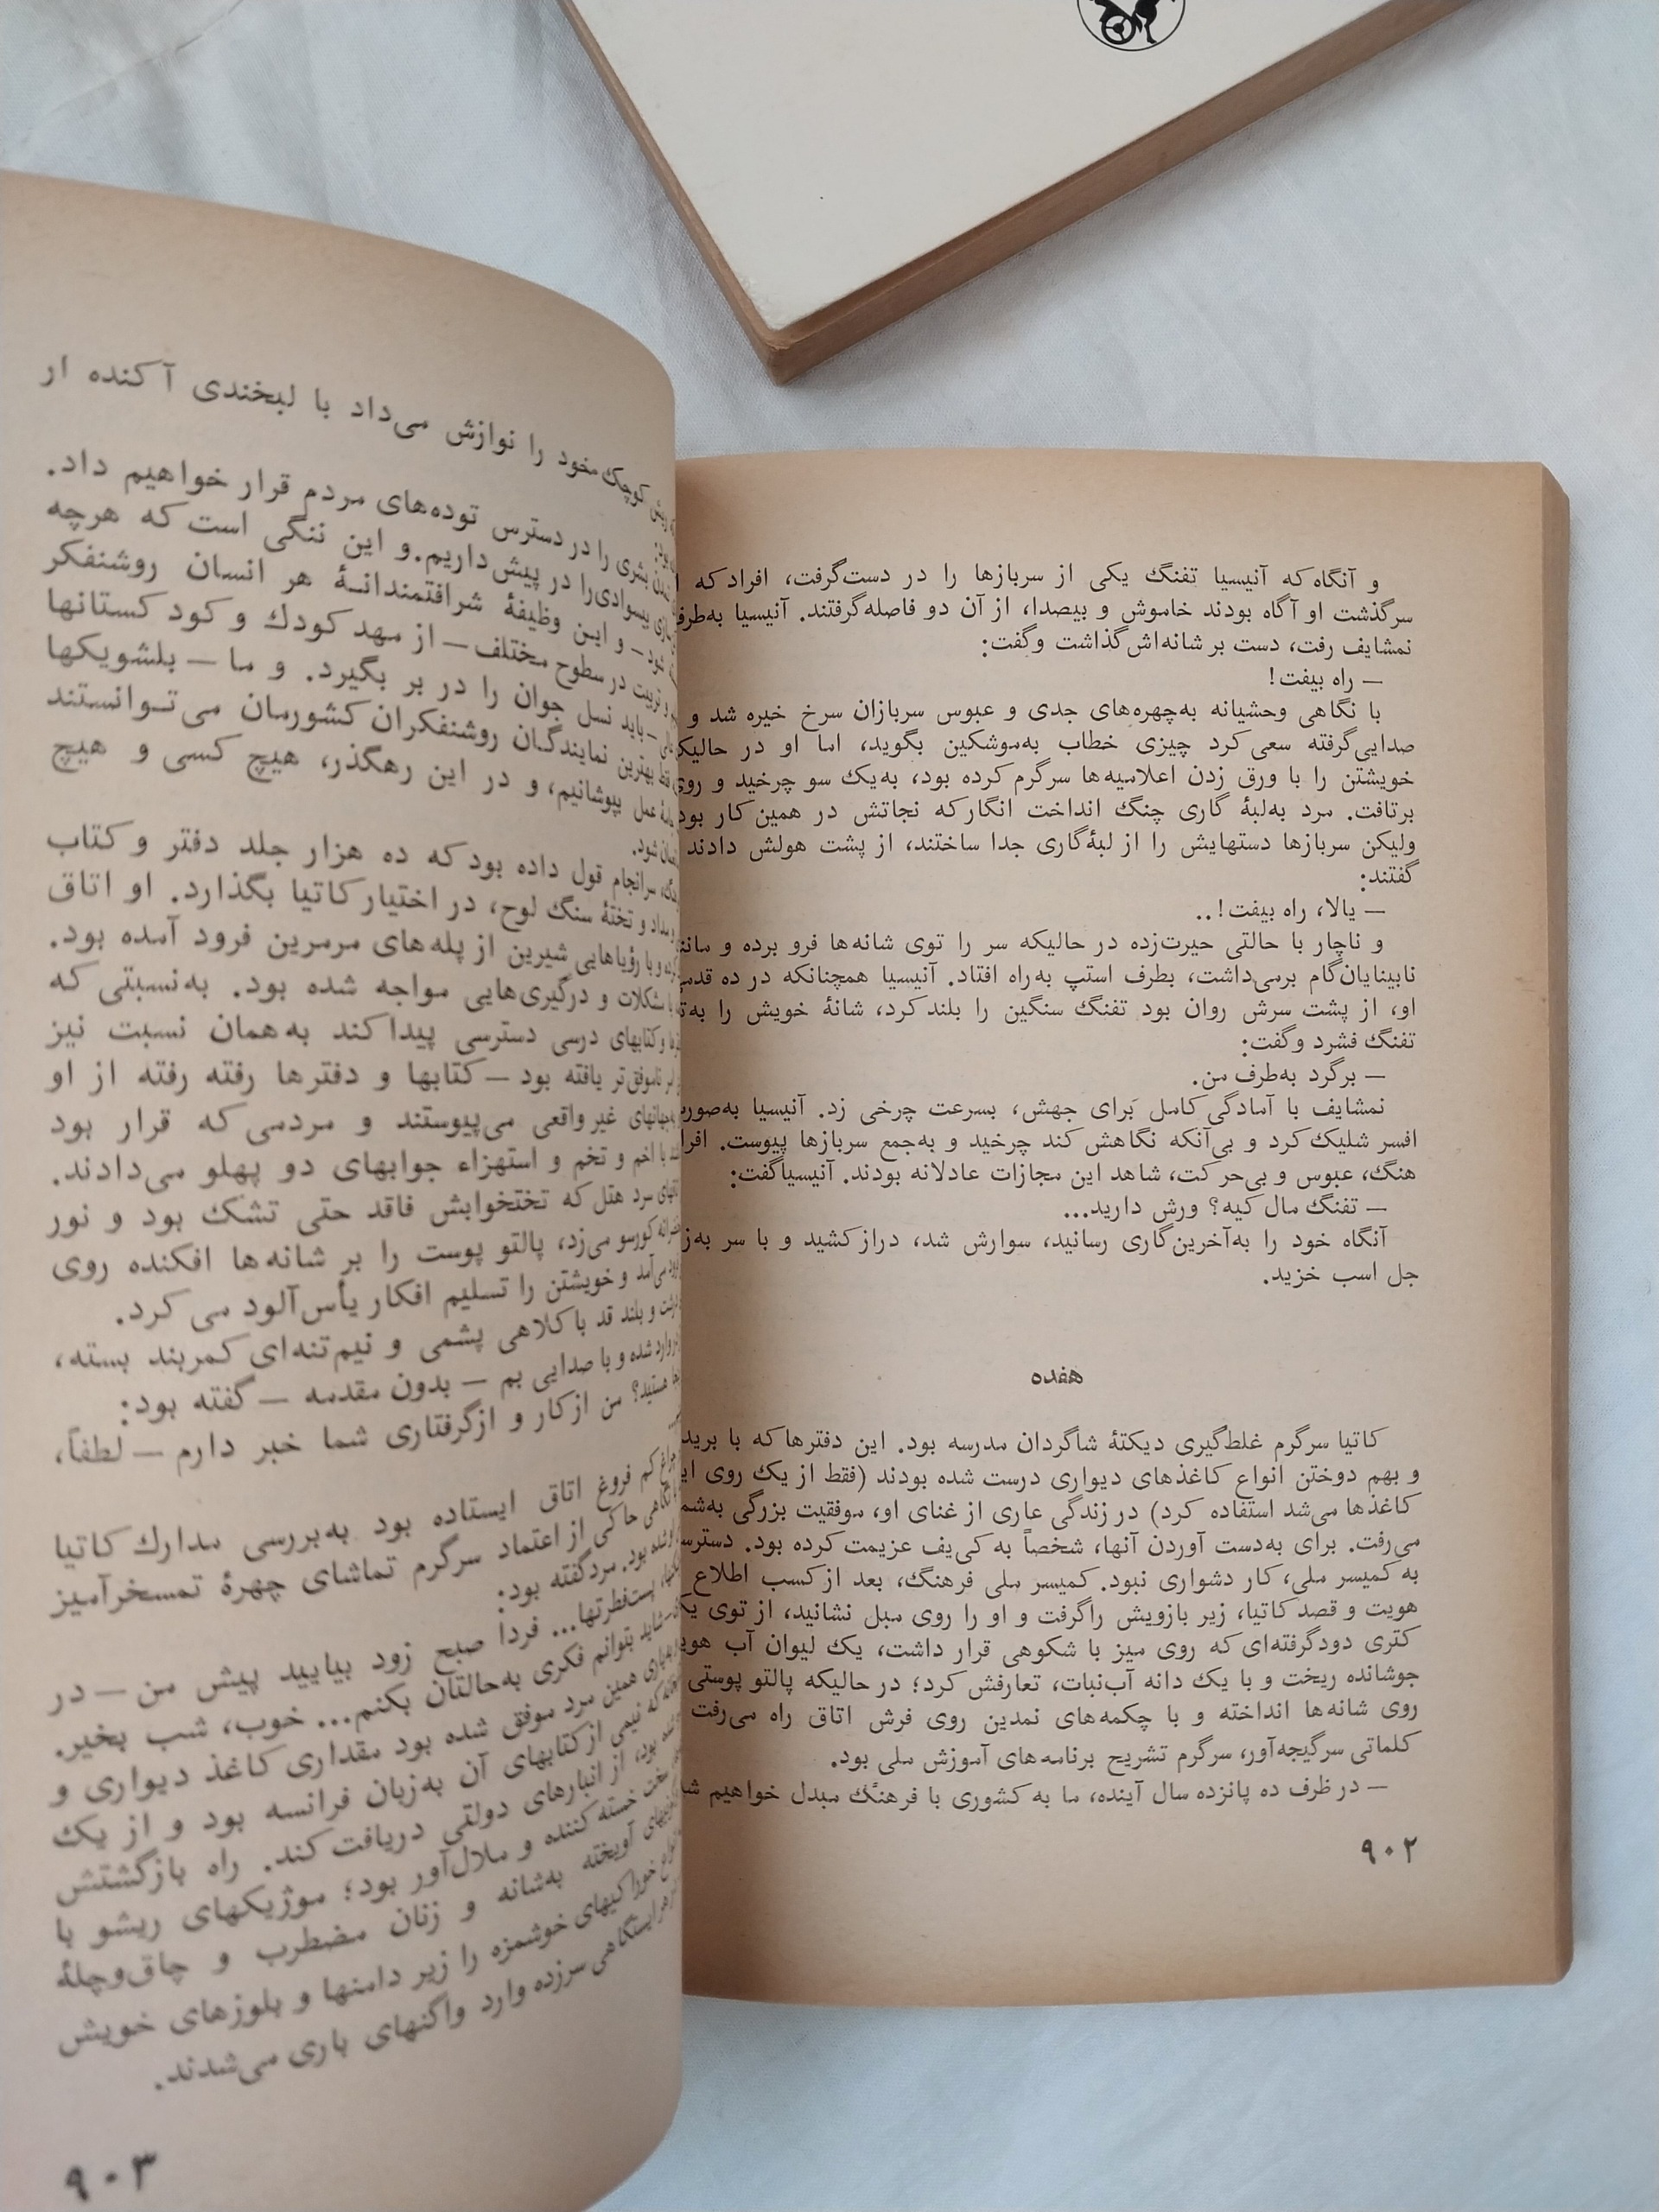 و آنگاه که آنیسیا تفنگ یکی از سربازها را در دست‌گرفت، افراد که
سرگذشت او آگاه بودند خاموش و بیصدا، از آن دو فاصله‌گرفتند. آنیسیا به‌طرف
نمشایف رفت، دست بر شانه‌اش‌گذاشت وگفت:
— راه بیفت!
با نگاهی وحشیانه به‌چهره‌های جدی و عبوس سربازان سرخ خیره شد و
صدایی‌گرفته سعی کرد چیزی خطاب به‌موشکین بگوید، اما او در
خویشتن را با ورق زدن اعلامیه‌ها سرگرم کرده بود، به‌یك سو چرخید و
برتافت. مرد به‌لبهٔ گاری چنگ انداخت انگارکه نجاتش در همین کار
ولیکن سربازها دستهایش را از لبهٔ‌گاری جدا ساختند، از پشت هولش دادند
گفتند:
— یالا، راه بیفت!..
و ناچار با حالتی حیرت‌زده در حالیکه سر را توی شانه‌ها فرو برده و
نابینایان‌گام برمی‌داشت، بطرف استپ به‌راه افتاد. آنیسیا همچنانکه در ده
او، از پشت سرش روان بود تفنگ سنگین را بلند کرد، شانهٔ خویش را
تفنگ فشرد وگفت:
— برگرد به‌طرف من.
نمشایف با آمادگی کامل برای جهش، بسرعت چرخی زد. آنیسیا
افسر شلیك‌کرد و بی‌آنکه نگاهش کند چرخید و به‌جمع سربازها پیوست.
هنگ، عبوس و بی‌حرکت، شاهد این مجازات عادلانه بودند. آنیسیاگفت:
— تفنگ مال کیه؟ ورش دارید...
آنگاه خود را به‌آخرین‌گاری رسانید، سوارش شد، درازکشید و با سر
جل اسب خزید.
هفده
کاتیا سرگرم غلط‌گیری دیکتهٔ شاگردان مدرسه بود. این دفترها که با
و بهم دوختن انواع کاغذهای دیواری درست شده بودند (فقط از یك روی
کاغذها می‌شد استفاده کرد) در زندگی عاری از غنای او، موفقیت بزرگی
می‌رفت. برای به‌دست آوردن آنها، شخصاً به کی‌یف عزیمت کرده بود.
به کمیسر ملی، کار دشواری نبود. کمیسر ملی فرهنگ، بعد از کسب اطلاع
هویت و قصد کاتیا، زیر بازویش راگرفت و او را روی مبل نشانید، از توی
کتری دودگرفته‌ای که روی میز با شکوهی قرار داشت، یك لیوان آب
جوشانده ریخت و با یك دانه آب‌نبات، تعارفش کرد؛ در حالیکه پالتو پوستی
روی شانه‌ها انداخته و با چکمه‌های نمدین روی فرش اتاق راه می‌رفت
کلماتی سرگیجه‌آور، سرگرم تشریح برنامه‌های آموزش ملی بود.
— در ظرف ده پانزده سال آینده، ما به کشوری با فرهنگ مبدل خواهیم
۹۰۲
کوچک خود را نوازش می‌داد با لبخندی آکنده از
بشری را در دسترس توده‌های مردم قرار خواهیم داد.
بیسوادی‌را در پیش‌داریم. و این ننگی است که هرچه
و این وظیفهٔ شرافتمندانهٔ هر انسان روشنفکر
تربیت در سطوح مختلف — از مهد کودك و کودکستانها
— باید نسل جوان را در بر بگیرد. و ما — بلشویکها
بهترین نمایندگان روشنفکران کشورمان می‌توانستند
عمل بپوشانیم، و در این رهگذر، هیچ کسی و هیچ
سرانجام قول داده بود که ده هزار جلد دفتر و کتاب
مداد و تختهٔ سنگ لوح، در اختیار کاتیا بگذارد. او اتاق
و با رؤیاهایی شیرین از پله‌های مرمرین فرود آمده بود.
مشکلات و درگیری‌هایی مواجه شده بود. به‌نسبتی که
وکتابهای درسی دسترسی پیدا کند به‌همان نسبت نیز
ناموفق‌تر یافته بود — کتابها و دفترها رفته رفته از او
غیر واقعی می‌پیوستند و مردمی که قرار بود
با اخم و تخم و استهزاء جوابهای دو پهلو می‌دادند.
سرد هتل که تختخوابش فاقد حتی تشک بود و نور
کورسو می‌زد، پالتو پوست را بر شانه‌ها افکنده روی
می‌آمد و خویشتن را تسلیم افکار یأس‌آلود می کرد.
و بلند قد با کلاهی پشمی و نیم‌تنه‌ای کمربند بسته،
وارد شده و با صدایی بم — بدون مقدمه — گفته بود:
هستید؟ من ازکار و ازگرفتاری شما خبر دارم — لطفاً،
کم فروغ اتاق ایستاده بود به‌بررسی مدارك کاتیا
نگاهی حاکی از اعتماد سرگرم تماشای چهرهٔ تمسخرآمیز
بود. مرد گفته بود:
فردا صبح زود بیایید پیش من — در
شاید بتوانم فکری به‌حالتان بکنم... خوب، شب بخیر.
همین مرد موفق شده بود مقداری کاغذ دیواری و
که نیمی از کتابهای آن به‌زبان فرانسه بود و از یك
بود، از انبارهای دولتی دریافت کند. راه بازگشتش
سخت خسته کننده و ملال‌آور بود؛ موژیکهای ریشو با
آویخته به‌شانه و زنان مضطرب و چاق‌وچلهٔ
خوراکیهای خوشمزه را زیر دامنها و بلوزهای خویش
ایستگاهی سرزده وارد واگنهای باری می‌شدند.
۹۰۳